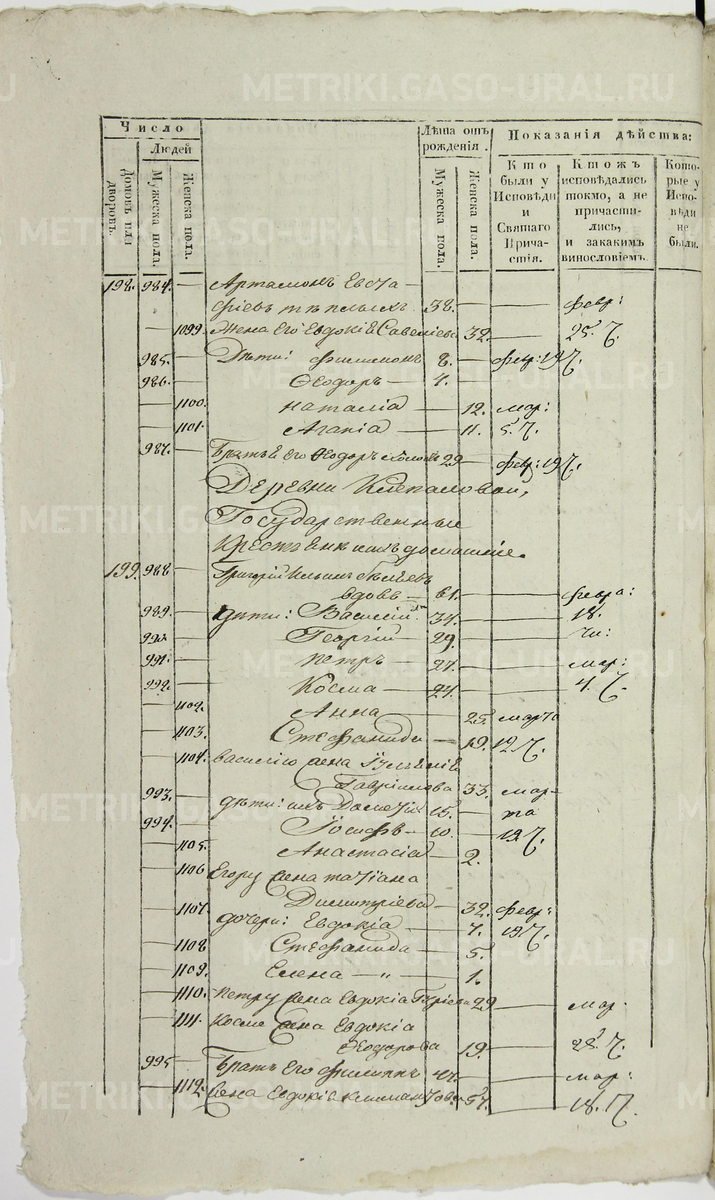 METRIKI.GASO-URAL.RU
Число
Людей
Домовъ или дворовъ.
Мужеска пола.
Женска пола.
Лѣта отъ рожденія.
Мужеска пола.
Женска пола.
Показанія дѣйства:
Кто были у Исповѣди и Святаго Причастія.
Ктожъ исповѣдались токмо, а не причастились, и закакимъ винословіемъ.
Которые у Исповѣди не были.
198. 984. Артамонъ Евста-
фіевъ 38. февр:
1099. Жена его Евдокія Савеліева 32. 25. Ч.
985. Дѣти: Филимонъ 8. февр: 19 Ч.
986. Ѳеодоръ 4.
1100. Наталія 12. мар:
1101. Агапіа 11. 5. Ч.
987. Братъ его Ѳеодоръ 29 февр: 19 Ч.
Деревни Клепаловой,
Государственные
крестьяне и ихъ домашніе.
199. 988. Григорій Ильинъ
вдовъ 61. февра:
989. дѣти: Василій 34. 18.
990. Георгій 29. Чи:
991. Петръ 27. мар:
992. Косма 24. 4. Ч.
1102. Анна 25. марта
1103. Стефанида 19. 12 Ч.
1104. Василію жена Іуліанія
Гавріилова 33. мар-
993. дѣти: ихъ 15. та
994. Іосифъ 10. 12 Ч.
1105. Анастасіа 2.
1106 Егору жена Татіана
Димитріева 32. февр:
1107. дочери: Евдокіа 7. 19 Ч.
1108. Стефанида 5.
1109. Елена 1.
1110. Петру жена Евдокіа 29 мар.
1111. Косме жена Евдокіа
Ѳеодорова 19. 28. Ч.
995 Братъ его Филиппъ 47. мар:
1112. Жена Евдокіа 57. 18. Ч.